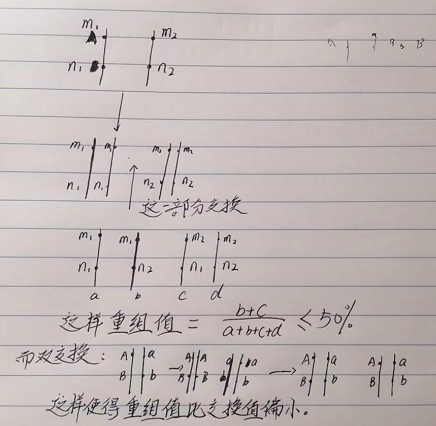 m₁ m₂
n₁ n₂
m₁ m₁ m₂ m₂
n₁ n₁ n₂ n₂
这二部分交换
m₁ m₁ m₂ m₂
n₁ n₂ n₁ n₂
a b c d
这样重组值 = b+c / a+b+c+d ≤ 50%
而双交换: A a A A a a A a A a
B b B B b b B b B b
这样使得重组值比交换值偏小。